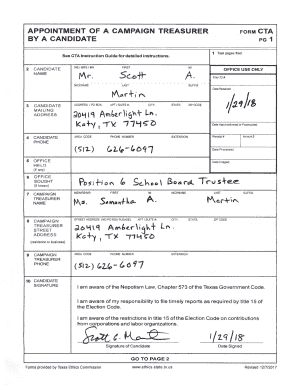 APPOINTMENT OF A CAMPAIGN TREASURER
BY A CANDIDATE
FORM CTA
PG 1
See CTA Instruction Guide for detailed instructions.
1 Total pages filed:
2 CANDIDATE NAME
MS / MRS / MR FIRST MI
Mr. Scott A.
NICKNAME LAST SUFFIX
Martin
OFFICE USE ONLY
Date Received
1/29/18
3 CANDIDATE MAILING ADDRESS
ADDRESS / PO BOX; APT / SUITE #; CITY; STATE; ZIP CODE
20419 Amberlight Ln.
Katy, TX 77450
Date Hand-delivered or Postmarked
4 CANDIDATE PHONE
AREA CODE PHONE NUMBER EXTENSION
(512) 626-6097
Receipt # Amount $
Date Processed
5 OFFICE HELD
(if any)
Date Imaged
6 OFFICE SOUGHT
(if known)
Position 6 School Board Trustee
7 CAMPAIGN TREASURER NAME
MS/MRS/MR FIRST MI NICKNAME LAST SUFFIX
Ms. Samantha A. Martin
8 CAMPAIGN TREASURER STREET ADDRESS
(residence or business)
STREET ADDRESS (NO PO BOX PLEASE); APT / SUITE #; CITY; STATE; ZIP CODE
20419 Amberlight Ln.
Katy, TX 77450
9 CAMPAIGN TREASURER PHONE
AREA CODE PHONE NUMBER EXTENSION
(512) 626-6097
10 CANDIDATE SIGNATURE
I am aware of the Nepotism Law, Chapter 573 of the Texas Government Code.
I am aware of my responsibility to file timely reports as required by title 15 of
the Election Code.
I am aware of the restrictions in title 15 of the Election Code on contributions
from corporations and labor organizations.
1/29/18
Signature of Candidate Date Signed
GO TO PAGE 2
Forms provided by Texas Ethics Commission www.ethics.state.tx.us Revised 12/7/2017